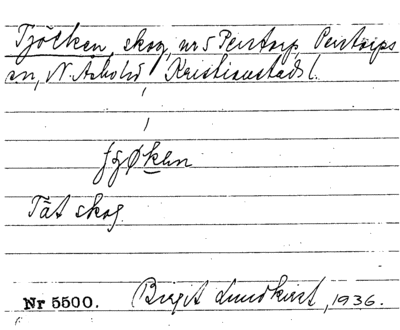 Tjöcken, skog, nr 5 Pentorp, Pentorps
sn, N. Åsbohd Kristianstads l.
fgøken
Tät skog.
Nr 5500. Birgit Lundkvist, 1936.